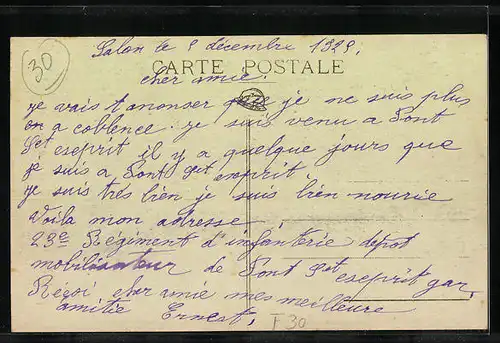 30
Salon le 8 décembre 1929.
CARTE POSTALE
cher amie.
je vais t anonser que je ne suis plus
a coblence. je suis venu a Pont
St eseprit il y a quelque jours que
je suis a Pont St esprit
je suis trés bien je suis bien nourie
voila mon adresse
23e Régiment d'infanterie depot
mobilisateur de Pont St eseprit gar
Reçoi cher amie mes meilleure
amitie Ernest.
F 30